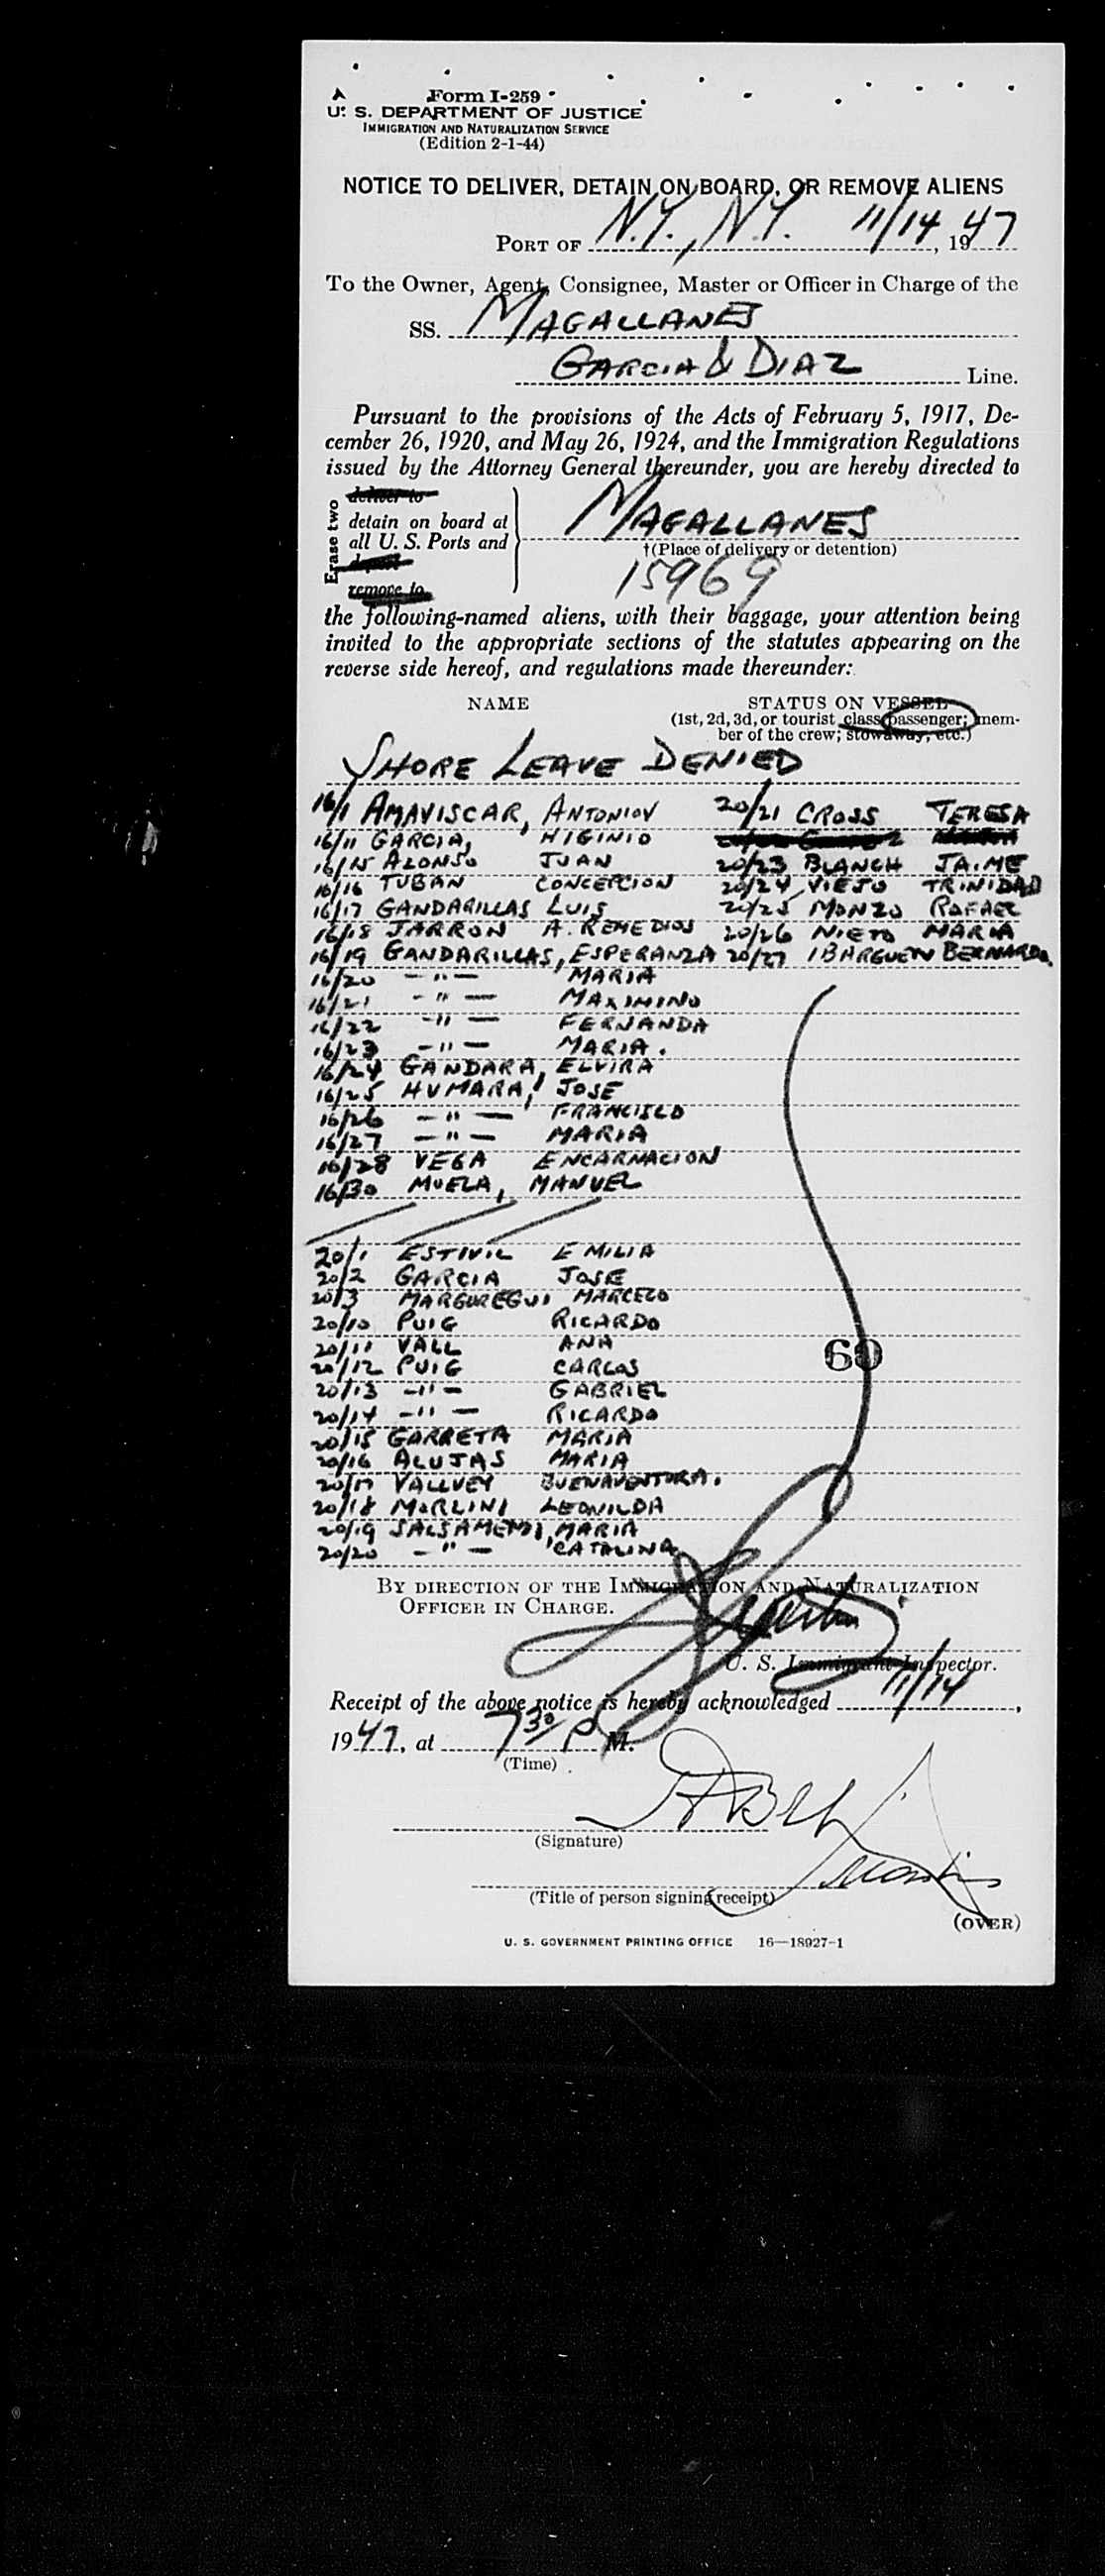 Form I-259
U. S. DEPARTMENT OF JUSTICE
IMMIGRATION AND NATURALIZATION SERVICE
(Edition 2-1-44)
NOTICE TO DELIVER, DETAIN ON BOARD, OR REMOVE ALIENS
PORT OF N.Y., N.Y. 11/14, 1947
To the Owner, Agent, Consignee, Master or Officer in Charge of the
SS. MAGALLANES
GARCIA & DIAZ Line.
Pursuant to the provisions of the Acts of February 5, 1917, De-
cember 26, 1920, and May 26, 1924, and the Immigration Regulations
issued by the Attorney General thereunder, you are hereby directed to
Erase two
deliver to
detain on board at
all U. S. Ports and
deport
remove to
MAGALLANES
†(Place of delivery or detention)
15969
the following-named aliens, with their baggage, your attention being
invited to the appropriate sections of the statutes appearing on the
reverse side hereof, and regulations made thereunder:
NAME STATUS ON VESSEL
(1st, 2d, 3d, or tourist class passenger; mem-
ber of the crew; stowaway, etc.)
SHORE LEAVE DENIED
16/1 AMAVISCAR, ANTONIO 20/21 CROSS TERESA
16/11 GARCIA, HIGINIO
16/15 ALONSO JUAN 20/23 BLANCH JAIME
16/16 TUBAN CONCEPCION 20/24 VIEJO TRINIDAD
16/17 GANDARILLAS LUIS 20/25 MONZO RAFAEL
16/18 JARRON A. REMEDIOS 20/26 NIETO MARIA
16/19 GANDARILLAS, ESPERANZA 20/27 IBARGUEN BERNARDO.
16/20 - " - MARIA
16/21 - " - MAXIMINO
16/22 - " - FERNANDA
16/23 - " - MARIA.
16/24 GANDARA, ELVIRA
16/25 HUMARA, JOSE
16/26 - " - FRANCISCO
16/27 - " - MARIA
16/28 VEGA ENCARNACION
16/30 MUELA, MANUEL
20/1 ESTIVIL EMILIA
20/2 GARCIA JOSE
20/3 MARGUREGUI MARCELO
20/10 PUIG RICARDO
20/11 VALL ANA
20/12 PUIG CARLOS
20/13 - " - GABRIEL
20/14 - " - RICARDO
20/15 GARRETA MARIA
20/16 ALUJAS MARIA
20/17 VALLVEY BUENAVENTURA.
20/18 MORLINI LEONILDA
20/19 SALSAMENDI, MARIA
20/20 - " - CATALINA
60
BY DIRECTION OF THE IMMIGRATION AND NATURALIZATION
OFFICER IN CHARGE.
U. S. Immigrant Inspector.
Receipt of the above notice is hereby acknowledged 11/14,
1947, at 7 30 P M.
(Time)
(Signature)
(Title of person signing receipt)
(OVER)
U. S. GOVERNMENT PRINTING OFFICE 16—18927-1